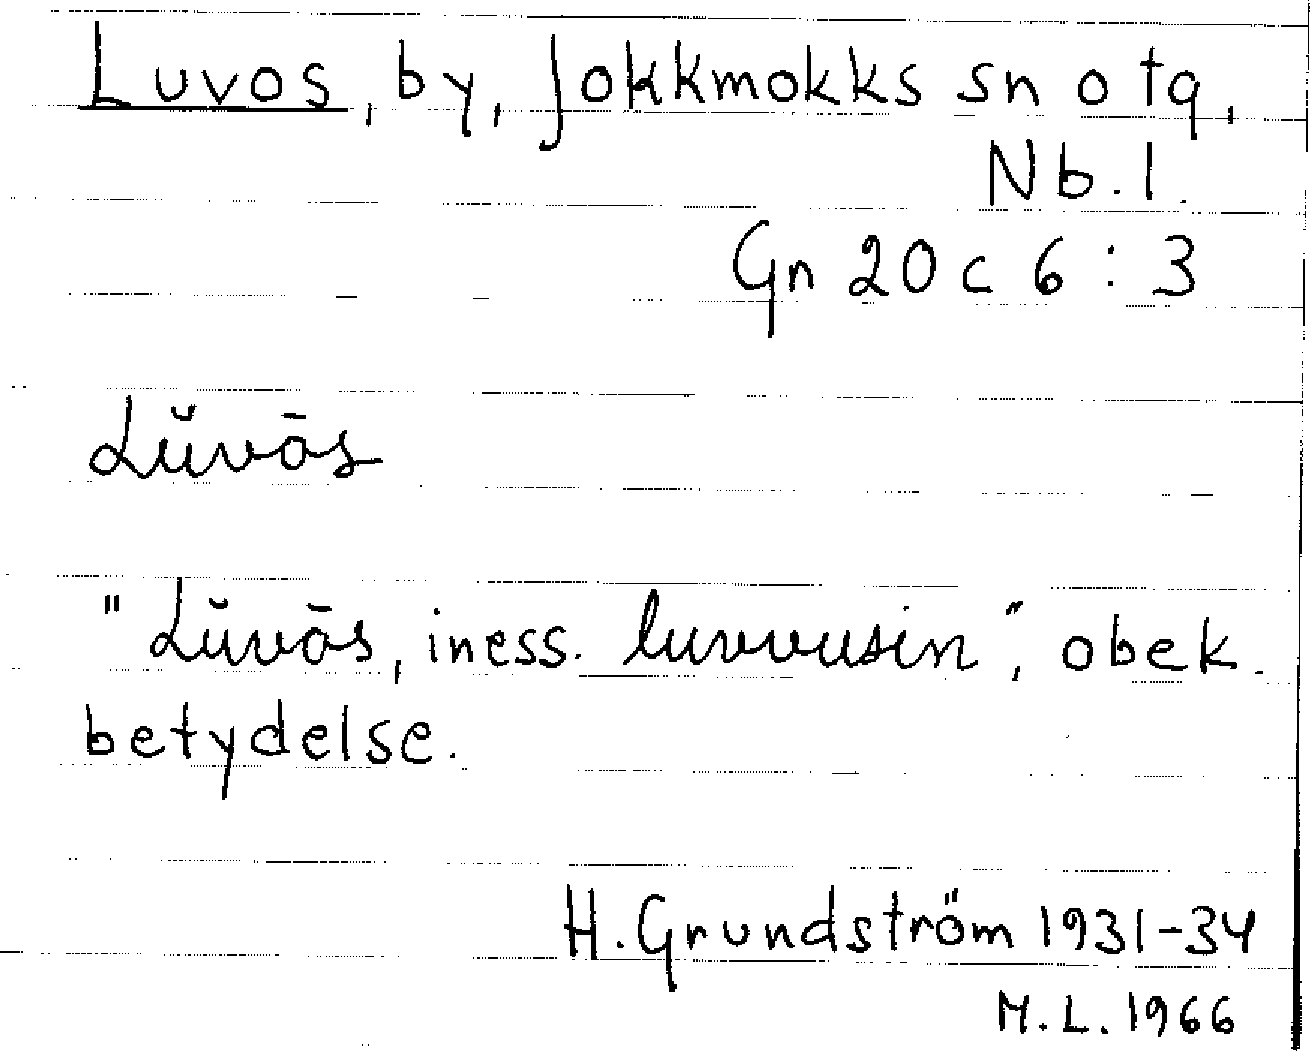 Luvos, by, Jokkmokks sn o tg,
Nb. l.
Gn 20 c 6 : 3
Lŭvōs
"Lŭvōs, iness. luvvusin", obek.
betydelse.
H. Grundström 1931-34
M.L. 1966